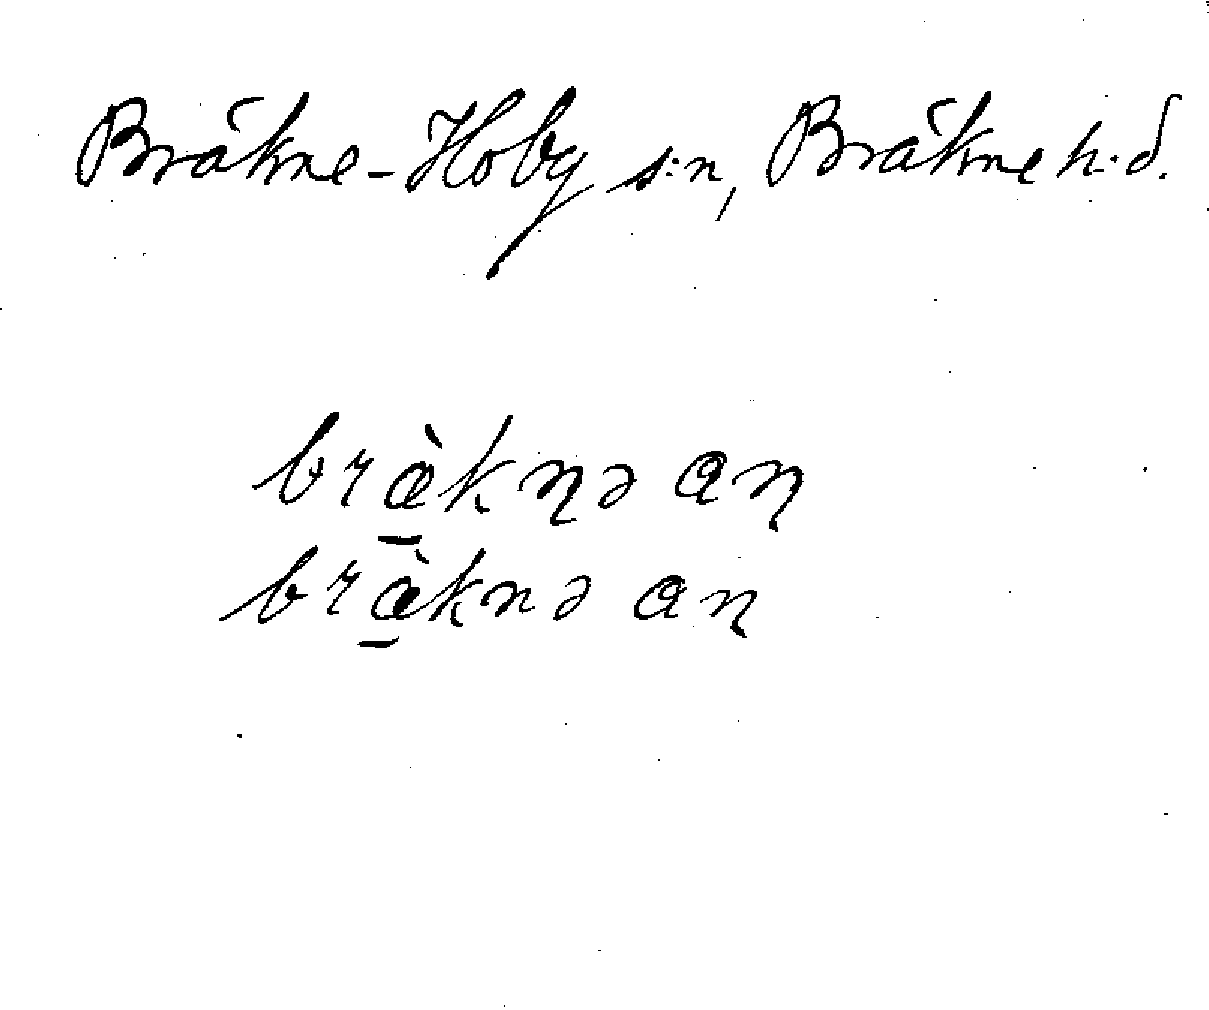 Bräkne-Hoby s:n, Bräkne h:d.
bræ̠̀kŋə aŋ
bræ̠̀knə aŋ